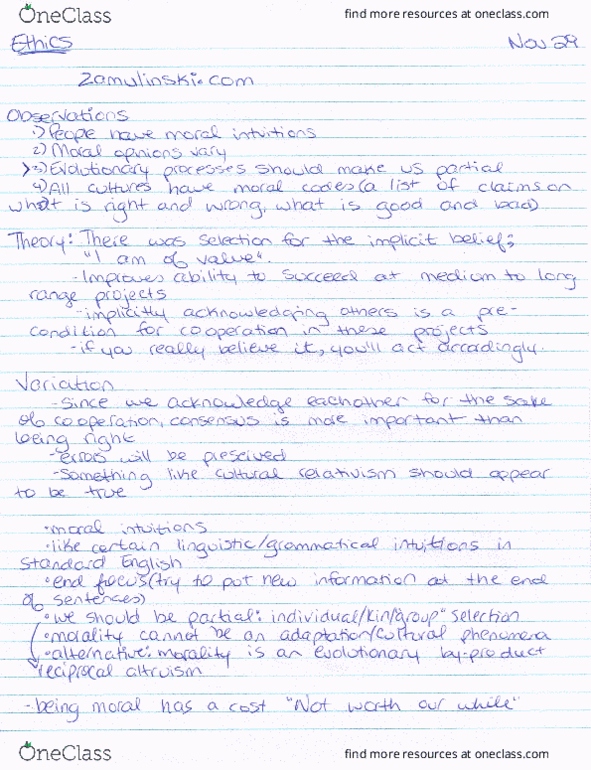 OneClass
find more resources at oneclass.com
Ethics
Nov 29
Zamulinski.com
Observations
1) People have moral intuitions
2) Moral opinions vary
>3) Evolutionary processes should make us partial
4) All cultures have moral codes (a list of claims on
what is right and wrong, what is good and bad)
Theory: There was selection for the implicit belief;
"I am of value".
-Improves ability to succeed at medium to long
range projects
-implicitly acknowledging others is a pre-
condition for cooperation in these projects
-if you really believe it, you'll act accordingly.
Variation
-Since we acknowledge eachother for the sake
of cooperation, consensus is more important than
being right
-errors will be preserved
-Something like cultural relativism should appear
to be true
•moral intuitions
•like certain linguistic/grammatical intuitions in
Standard English
•end focus (try to put new information at the end
of sentences)
•we should be partial: individual/kin/"group" selection
•morality cannot be an adaptation/cultural phenomena
•alternative: morality is an evolutionary by-product
reciprocal altruism
-being moral has a cost "Not worth our while"
OneClass
find more resources at oneclass.com